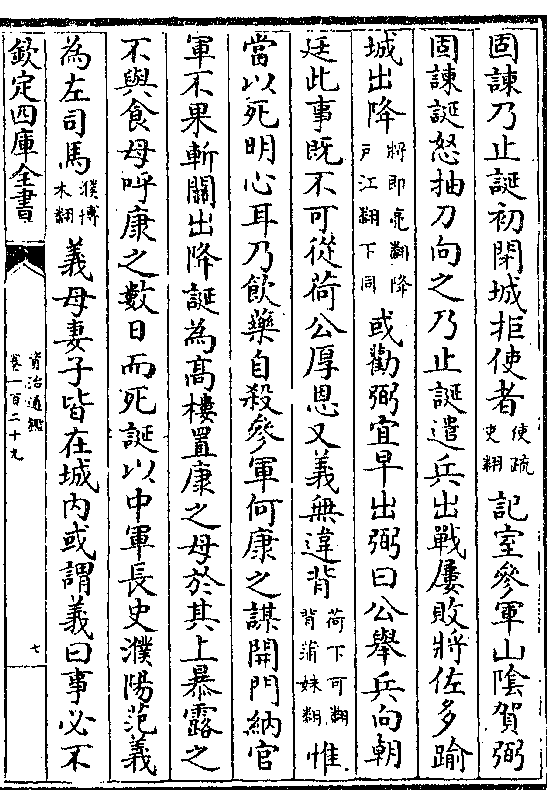 固諫乃止誕初閉城拒使者使疏吏翻記室參軍山隂賀弼
固諫誕怒抽刀向之乃止誕遣兵出戰屢敗將佐多踰
城出降將即亮翻降戸江翻下同或勸弼宜早出弼曰公舉兵向朝
廷此事既不可從荷公厚恩又義無違背荷下可翻背蒲妹翻惟
當以死明心耳乃飲藥自殺參軍何康之謀開門納官
軍不果斬關出降誕為高樓置康之母於其上暴露之
不與食母呼康之數日而死誕以中軍長史濮陽范義
為左司馬濮博木翻義母妻子皆在城内或謂義曰事必不
欽定四庫全書
資治通鑑
卷一百二十九
七